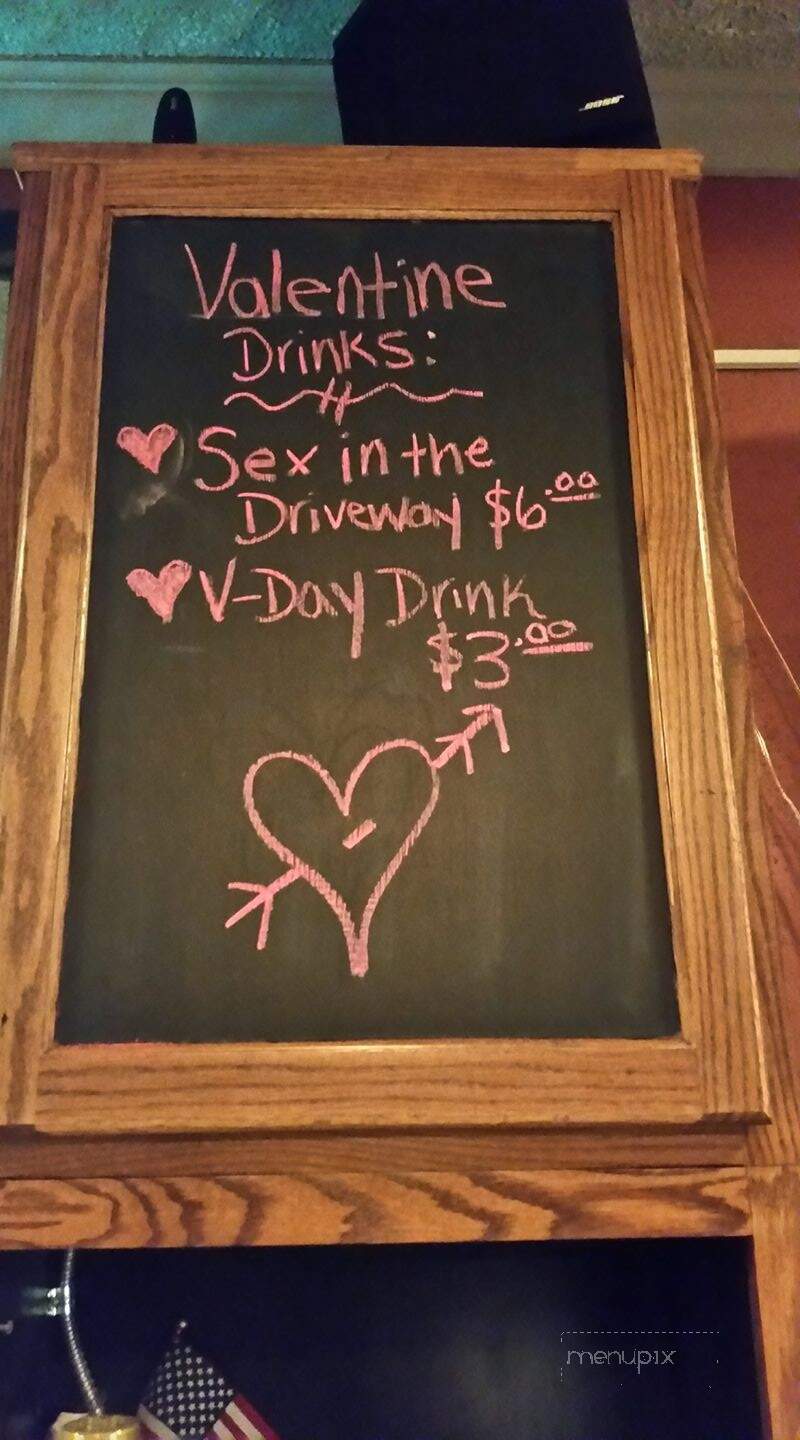 BOSE
Valentine
Drinks:
Sex in the
Driveway $6.00
V-Day Drink
$3.00
menupix